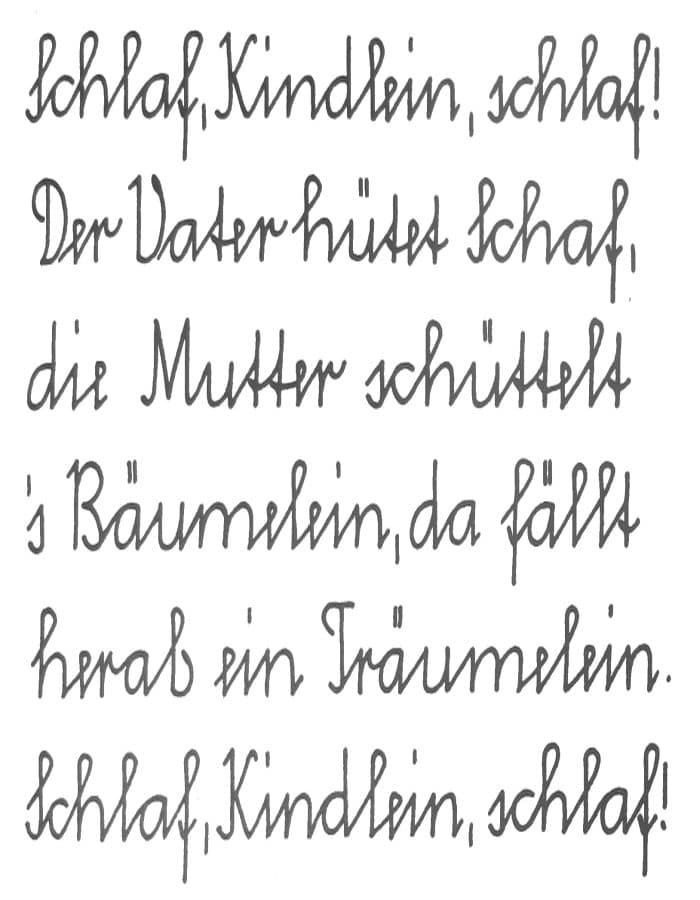 Schlaf, Kindlein, schlaf!
Der Vater hütet Schaf,
die Mutter schüttelt
's Bäumelein, da fällt
herab ein Träumelein.
Schlaf, Kindlein, schlaf!